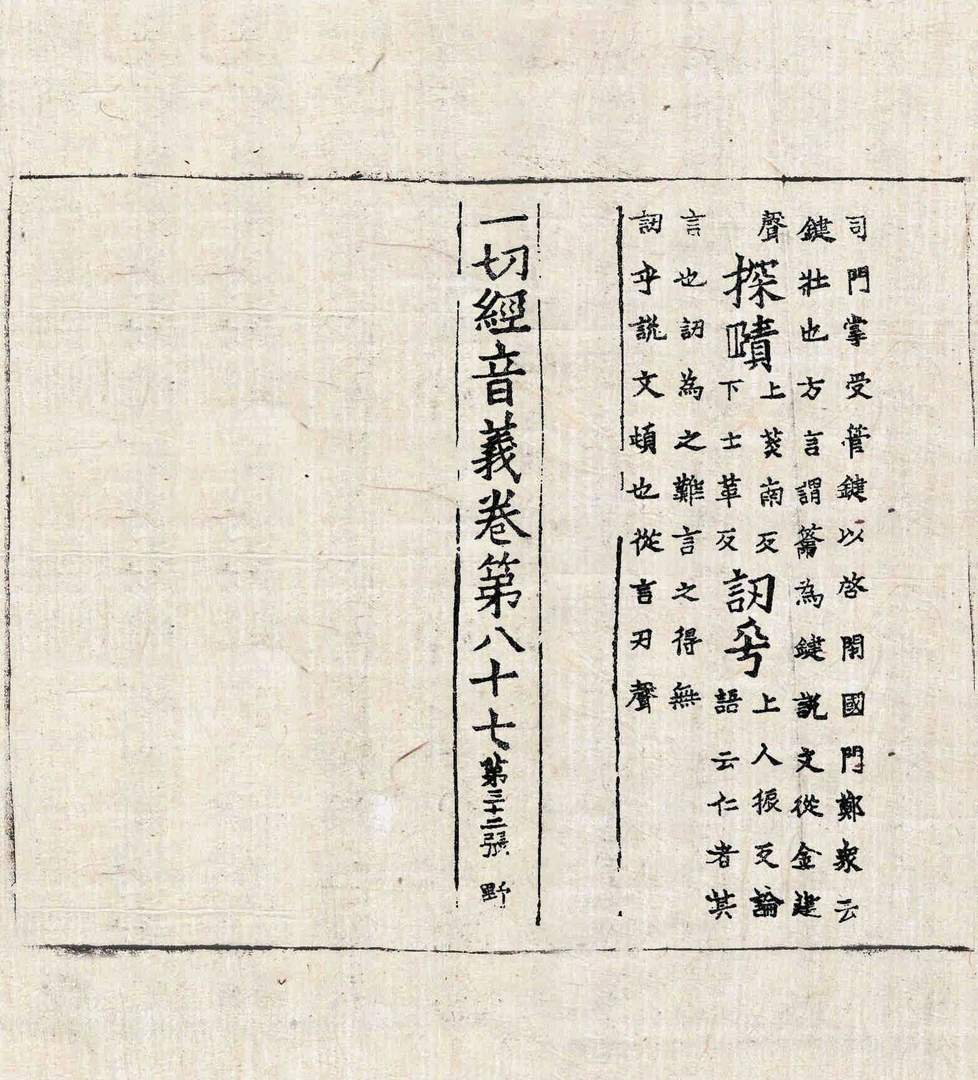 司門掌受管鍵以啓閇國門鄭衆云
鍵壯也方言謂籥為鍵說文從金建
聲
探賾
上菼南反
下士革反
訒乎
上人振反論
語云仁者其
言也訒為之難言之得無
訒乎說文頓也從言刃聲
一切經音義卷第八十七 第三十二張 野